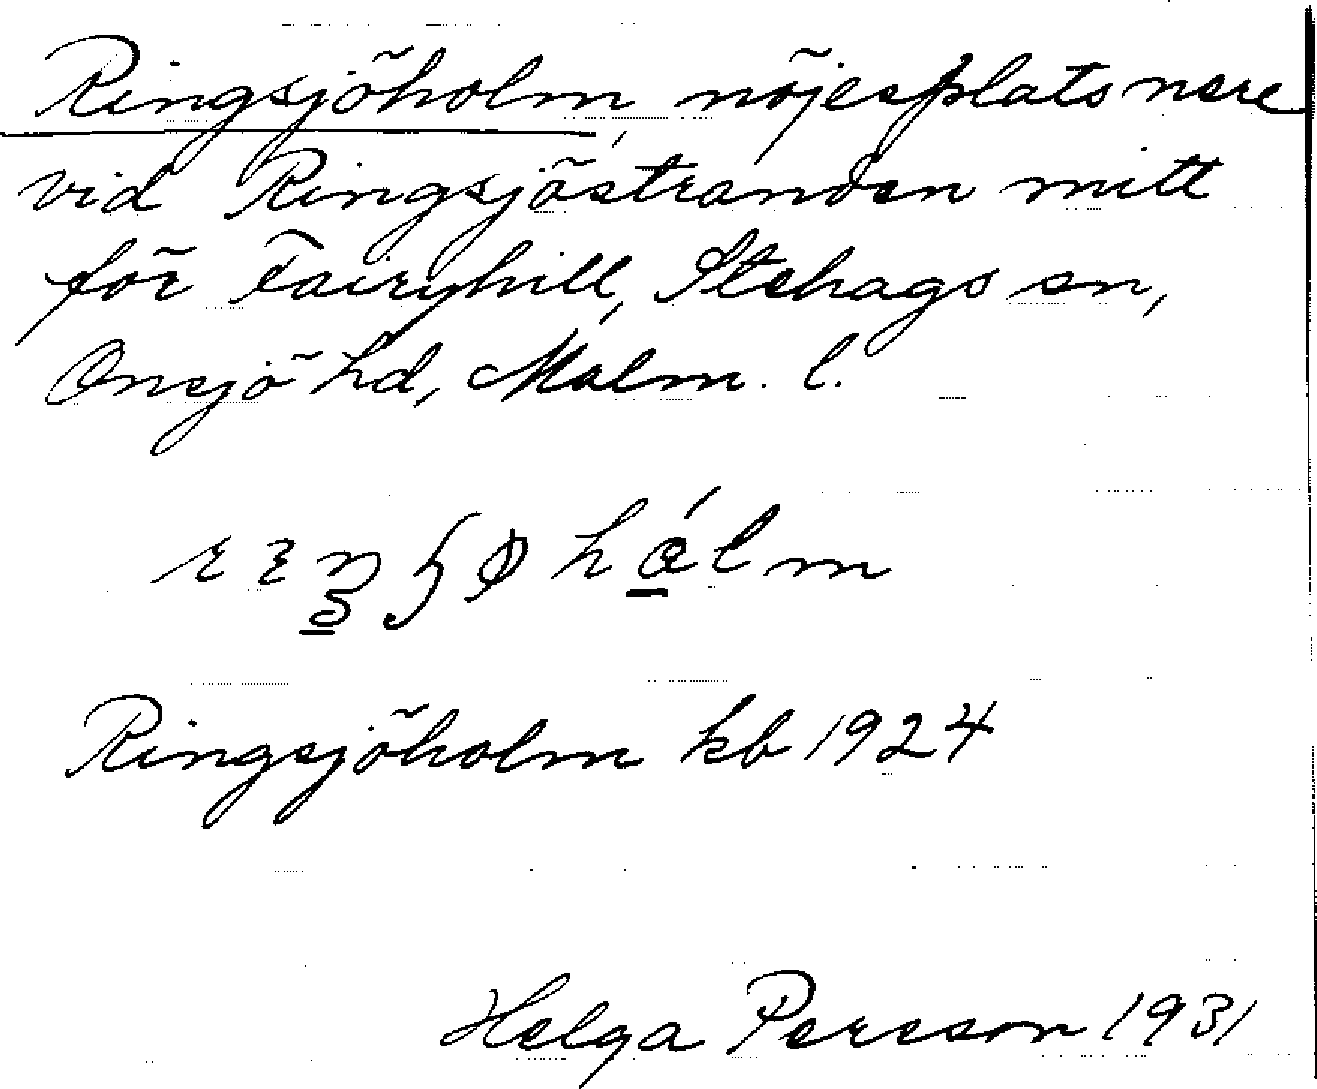 Ringsjöholm, nöjesplats nere
vid Ringsjöstranden mitt
för Fairyhill, Stehags sn,
Onsjö hd, Malm. l.
Ringsjöholm kb 1924
Helga Persson 1931